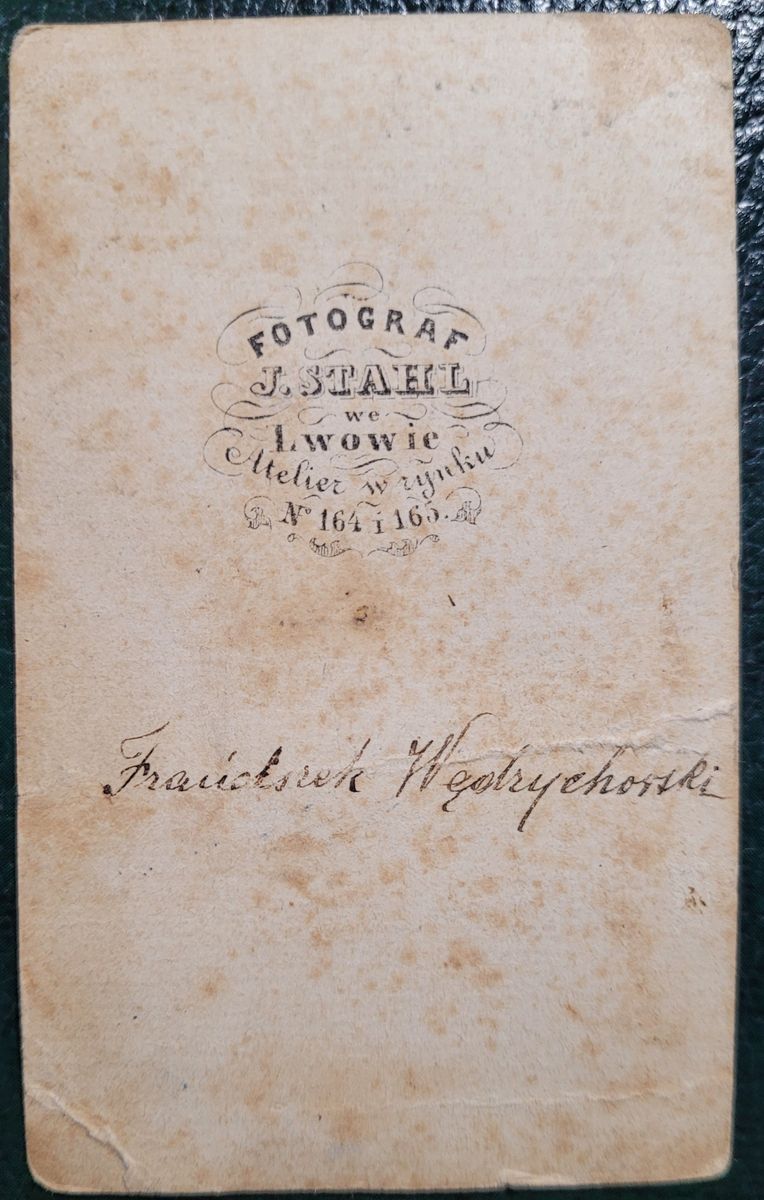 FOTOGRAF
J. STAHL
we
Lwowie
Atelier w rynku
No 164 i 165.
Franciszek Wędrychowski